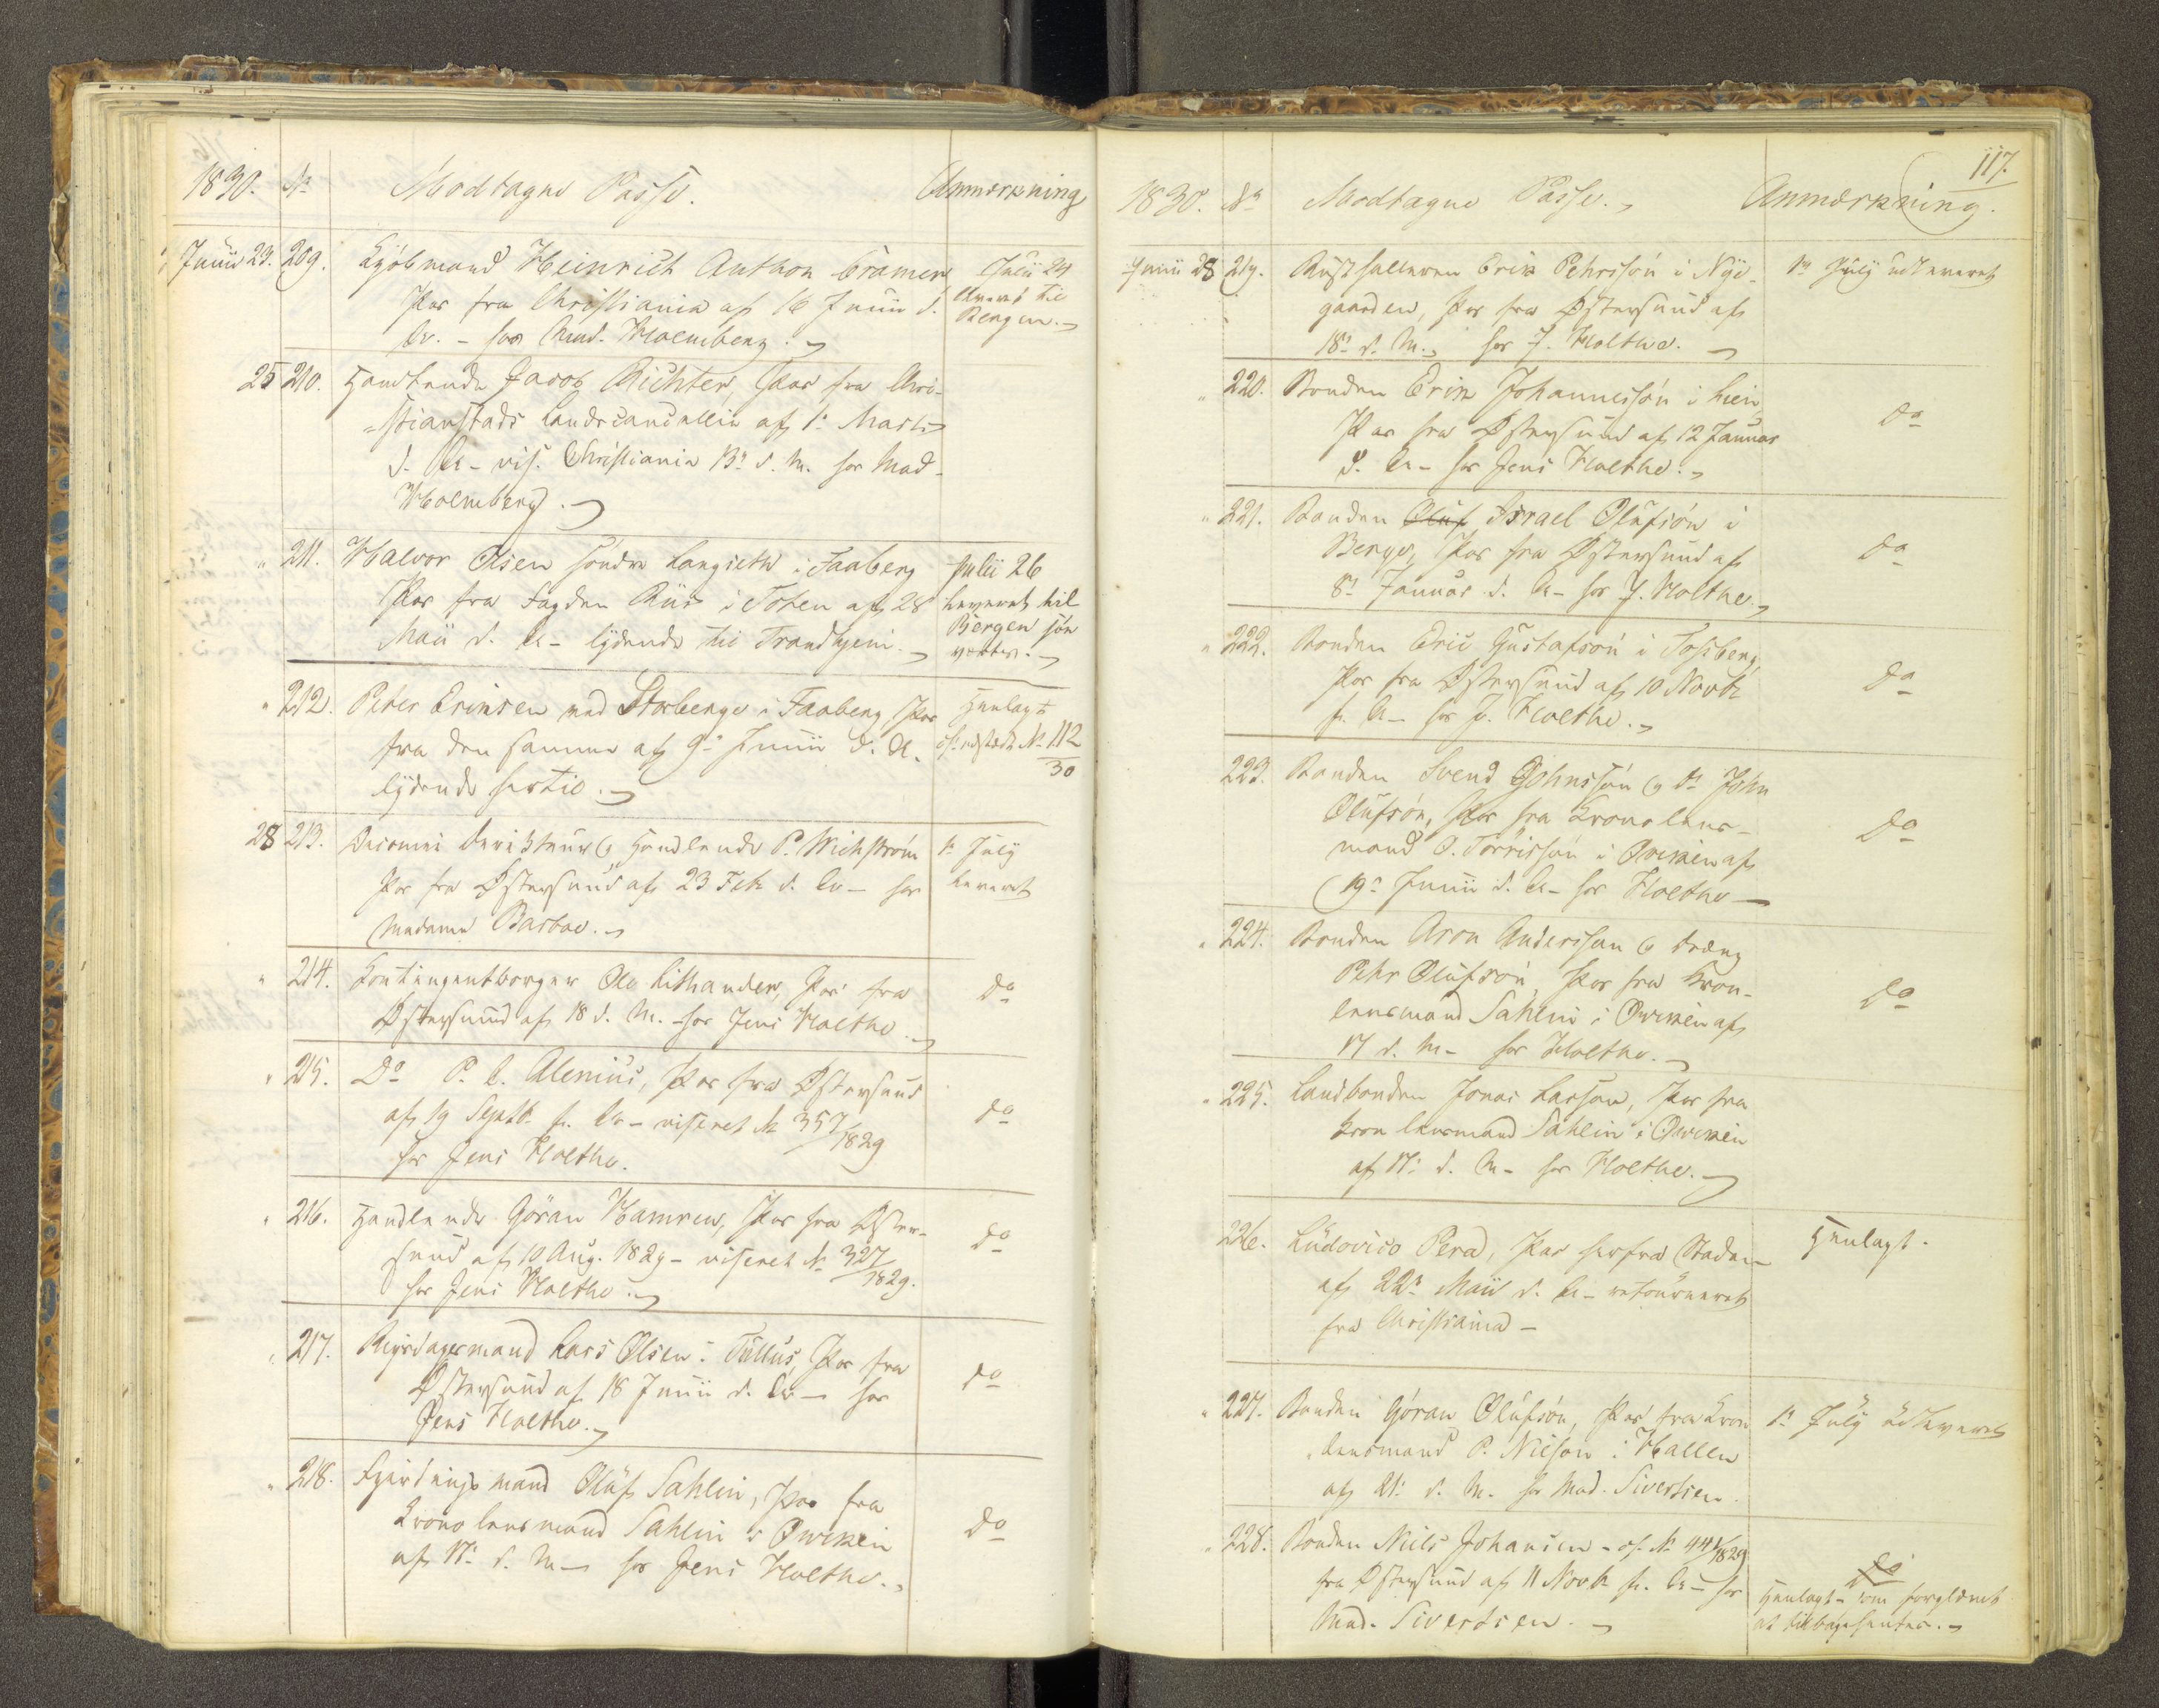 1830. No Modtagne Passe. Anmærkning
Junii 23. 209. Kjöbmand Heinrich Anthon Cramer,
Pas fra Christiania af 16 Junii d.
Ar. - hos Mad. Holmberg.
Julii 24
leveret til
Bergen.
25 210. Handlende Jacob Richter, Pas fra Chri-
stianstads Landscancellie af 1: Marts
d. A - vis. Christiania 13: d. M. hos Mad.
Holmberg.
" 211. Halvor Olsen söndre Langseth i Faaberg
Pas fra Fogden Riis i Toten af 28
Maii d. A - lydende til Trondhjem.
Julii 26
leveret til
Bergen
" 212. Peter Eriksen ved Storberge i Faaberg Pas
fra den samme af 9: Junii d. A.
lydende hertil.
Henlagt
cf. udstædt No 112/30
28 213. Directeur og Handlende P. Wichström
Pas fra Östersund af 23 Feb. d. Ar - hos
Madame Barbae.
1: July
leveret
" 214. Contingentborger Ole Lithander, Pas fra
Östersund af 18 d. M. - hos Jens Holthe.
do
" 215. Do P. C. Alenius, Pas fra Östersund
af 19 Septb. f. Ar - viseret No 357/1829
hos Jens Holthe.
do
" 216. Handlende Göran Hamren, Pas fra Öster-
sund af 10 Aug. 1829 - viseret No 327/1829.
hos Jens Holthe.
do
" 217. Rigsdagsmand Lars Olsen i Tullus, Pas fra
Östersund af 18 Junii d. Ar - hos
Jens Holthe.
do
" 218. Fjerdingsmand Oluf Sahlin, Pas fra
Kronolensmand Sahlin i Oviken
af 17: d. M - hos Jens Holthe.
do
117.
1830. No Modtagne Passe. Anmærkning.
Junii 28 219. Rusthalleren Erik Pehrssön i Nye-
gaarden, Pas fra Östersund af
18: d. M. hos J. Holthe.
1: July udleveret
" 220. Bonden Erik Johannessön i Lien
Pas fra Östersund af 12 Januar
d. A - hos Jens Holthe.
do
" 221. Bonden Oluf Israel Olufsön i
Berge, Pas fra Östersund af
8: Januar d. A - hos J. Holthe.
do
" 222. Bonden Eric Gustafsön i Tossberg,
Pas fra Östersund af 10 Novb.
f. A - hos J. Holthe.
do
223. Bonden Svend Johnssön og do John
Olufsön, Pas fra Kronolens-
mand O. Torrissön i Oviken af
19: Junii d. A - hos Holthe
do
" 224. Bonden Aron Anderssan og dræng
Pehr Olufsön, Pas fra Kron-
lensmand Sahlin i Oviken af
17 d. M - hos Holthe.
do
" 225. Landbonden Jonas Larsson, Pas fra
Kron lensmand Sahlin i Oviken
af 17: d. M - hos Holthe.
226. Ludovico Pera, Pas herfra Staden
af 22: Maii d. A - retourneret
fra Christiania -
Henlagt.
" 227. Bonden Göran Olufsön, Pas fra Kron
lensmand P. Nilson i Hallen
af 21: d. M. hos Mad. Sivertsen.
1: July udleveret
" 228. Bonden Niels Johansen - cf. No 441/1829
fra Östersund af 11 Novb. f. A - hos
Mad. Sivertsen.
do
Henlagt - som forglemt
at tilbagehentes.